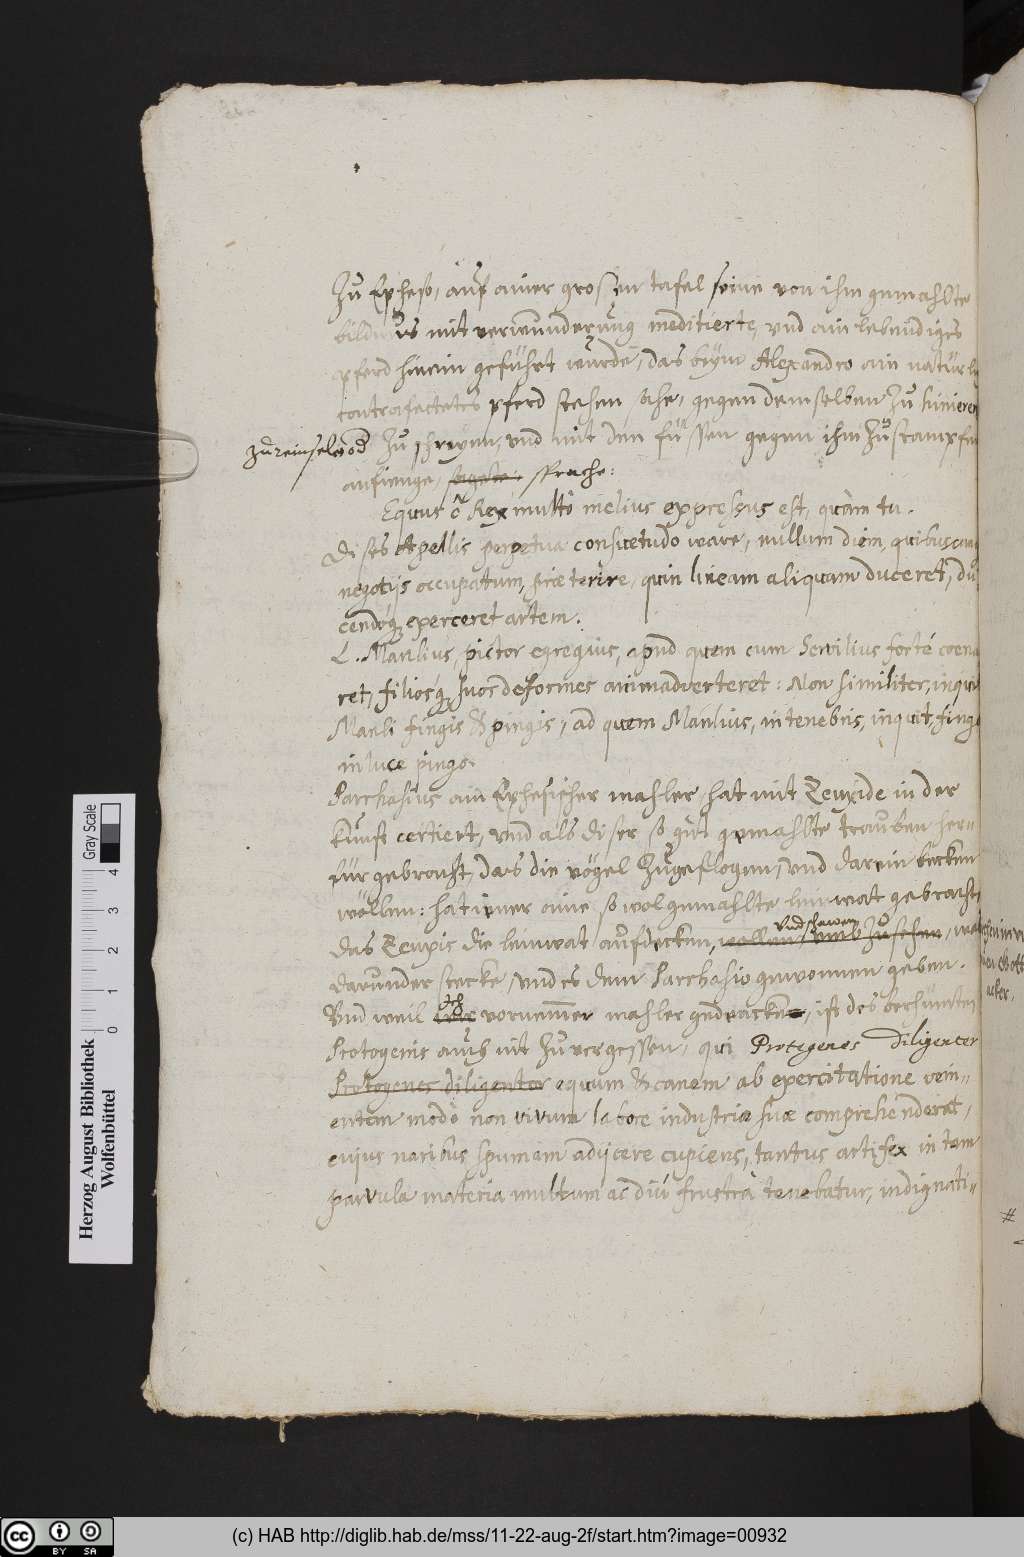 Zu Epheso, auf ainer grossen tafel seine von ihm gemahlte
bildnus mit verwunderung meditierte, vnd ain lebendiges
pferd hinein geführt wurde, das beym Alexandro ain natürl
contrafactetes pferd stehen sahe, gegen demselben zu
Zu schreyen, vnd mit den füssen gegen ihm Zu stampfen
anfienge, sagete. sprache:
Equus ô Rex multò melius expressus est, quàm tu.
Dises Apellis perpetua consuetudo ware, nullum diem, quibuscunq
negotijs occupatum, præterire, quin lineam aliquam duceret, du
cendoq; exerceret artem.
L. Manlius, pictor egregius, apud quem cum Servilius fortè coena
ret, filiosq; suos deformes animadverteret: Non similiter, inquit
Manli fingis & pingis, ad quem Manlius, in tenebris, inquit, fingo
in luce pingo.
Parrhasius ain Ephesischer mahler, hat mit Zeuxide in der
kunst certiert, vnd als diser so gut gemahlte trauben her-
für gebracht, das die vögel Zugeflogen, vnd darein bicken
wöllen: hat iener aine so wol gemahlte leinwat gebracht,
vnd schawen
das Zeuxis die leinwat aufdecken, wollen, vmb Zusehen, was
darunder stecke, vnd es dem Parrhasio gewonnen geben.
ich
Vnd weil vornemmer mahler gedencke, ist des berhümten
Protogenis auch nit Zu vergessen, qui Protegenes diligenter
Protogenes diligenter equum & canem ab exercitatione veni-
entem modò non vivum labore industria suæ comprehenderat,
cujus naribus spumam adijcere cupiens, tantus artifex in tam
parvula materia multum ac diu frustrà tenebatur, indignati-
#
acker,
Herzog August Bibliothek
Wolfenbüttel
0 1 2 3 4
Gray Scale
cc BY SA
(c) HAB http://diglib.hab.de/mss/11-22-aug-2f/start.htm?image=00932